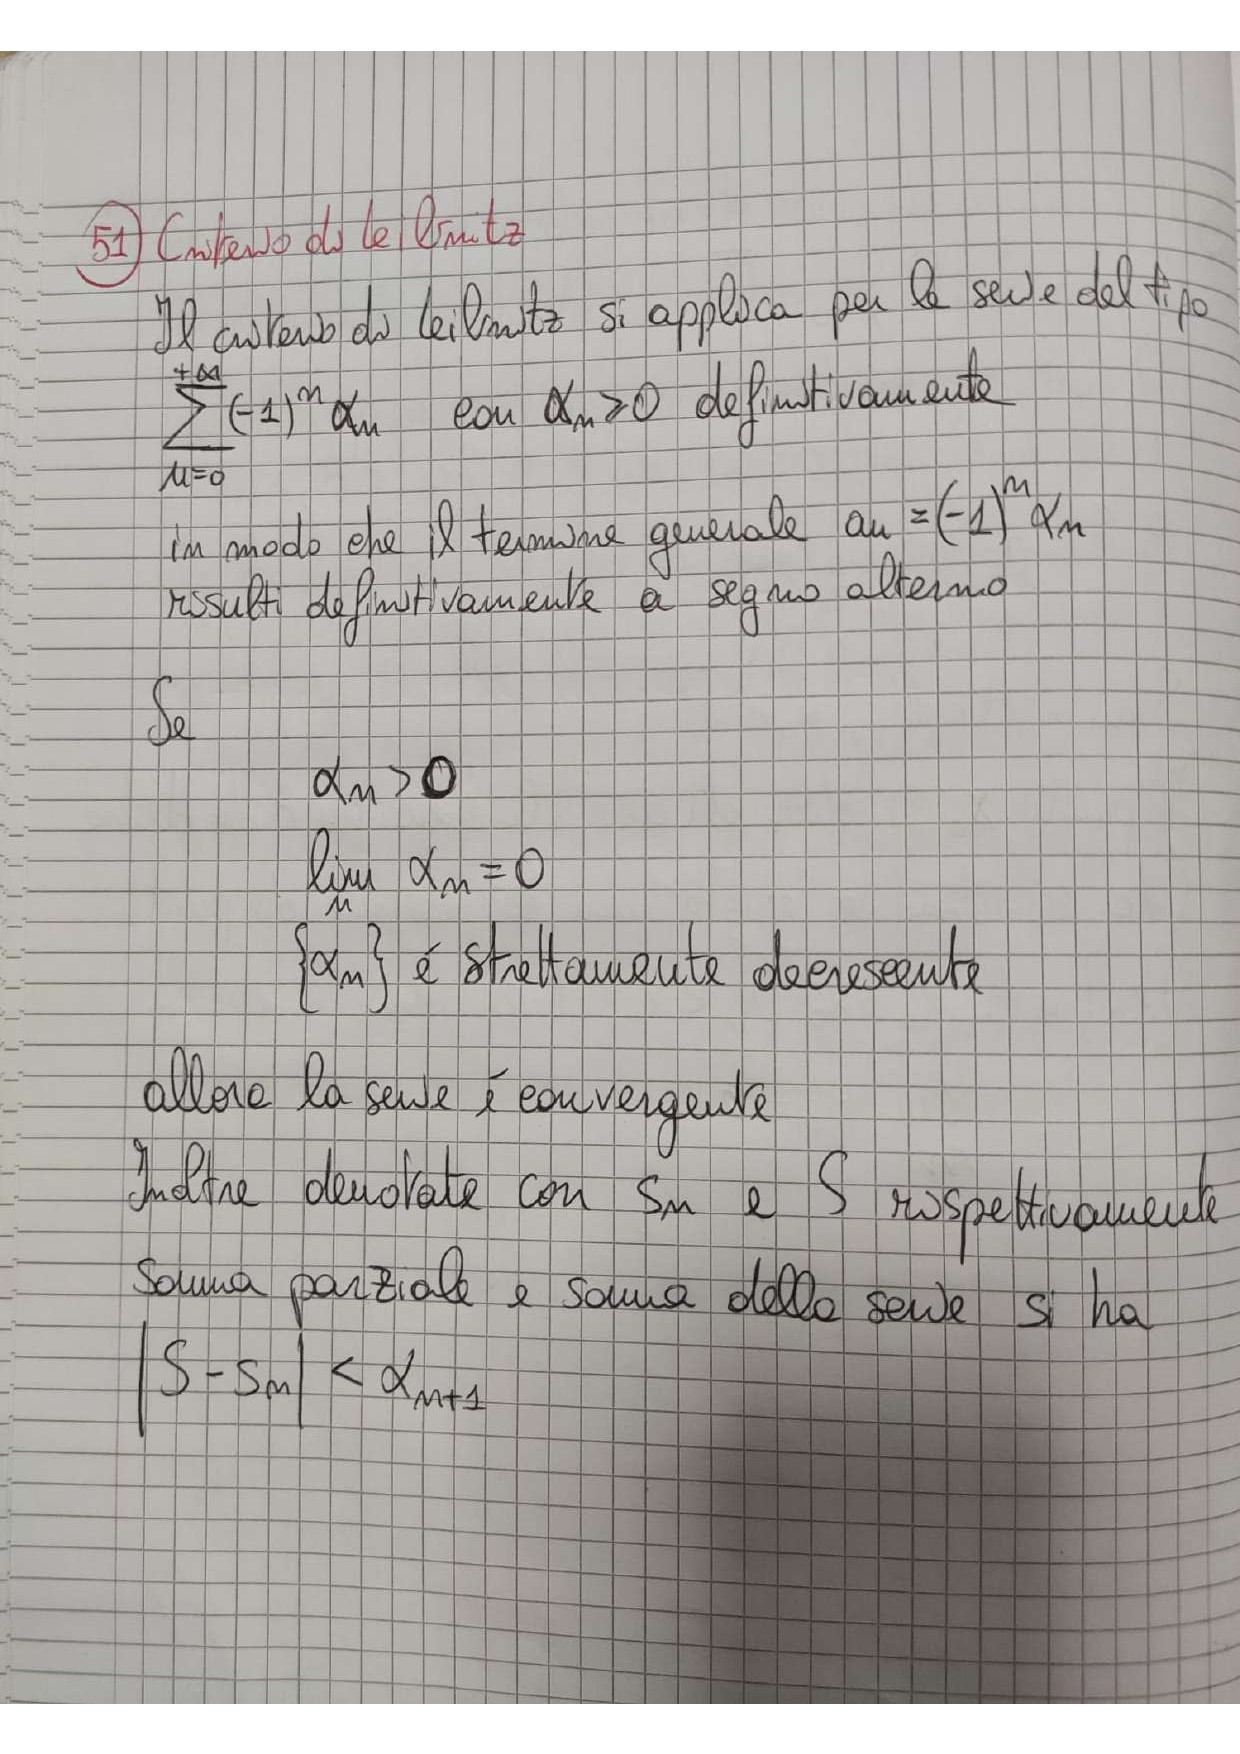 51) Criterio di leibnitz
Il criterio di leibnitz si applica per le serie del tipo
+∞
∑ (-1)^n αn con αn>0 definitivamente
n=0
in modo che il termine generale an = (-1)^n αn
risulti definitivamente a segno alterno
Se
αn > 0
lim αn = 0
n
{αn} é strettamente decrescente
allora la serie é convergente
Inoltre denotate con sn e S rispettivamente
somma parziale e somma della serie si ha
|S - sn| < αn+1